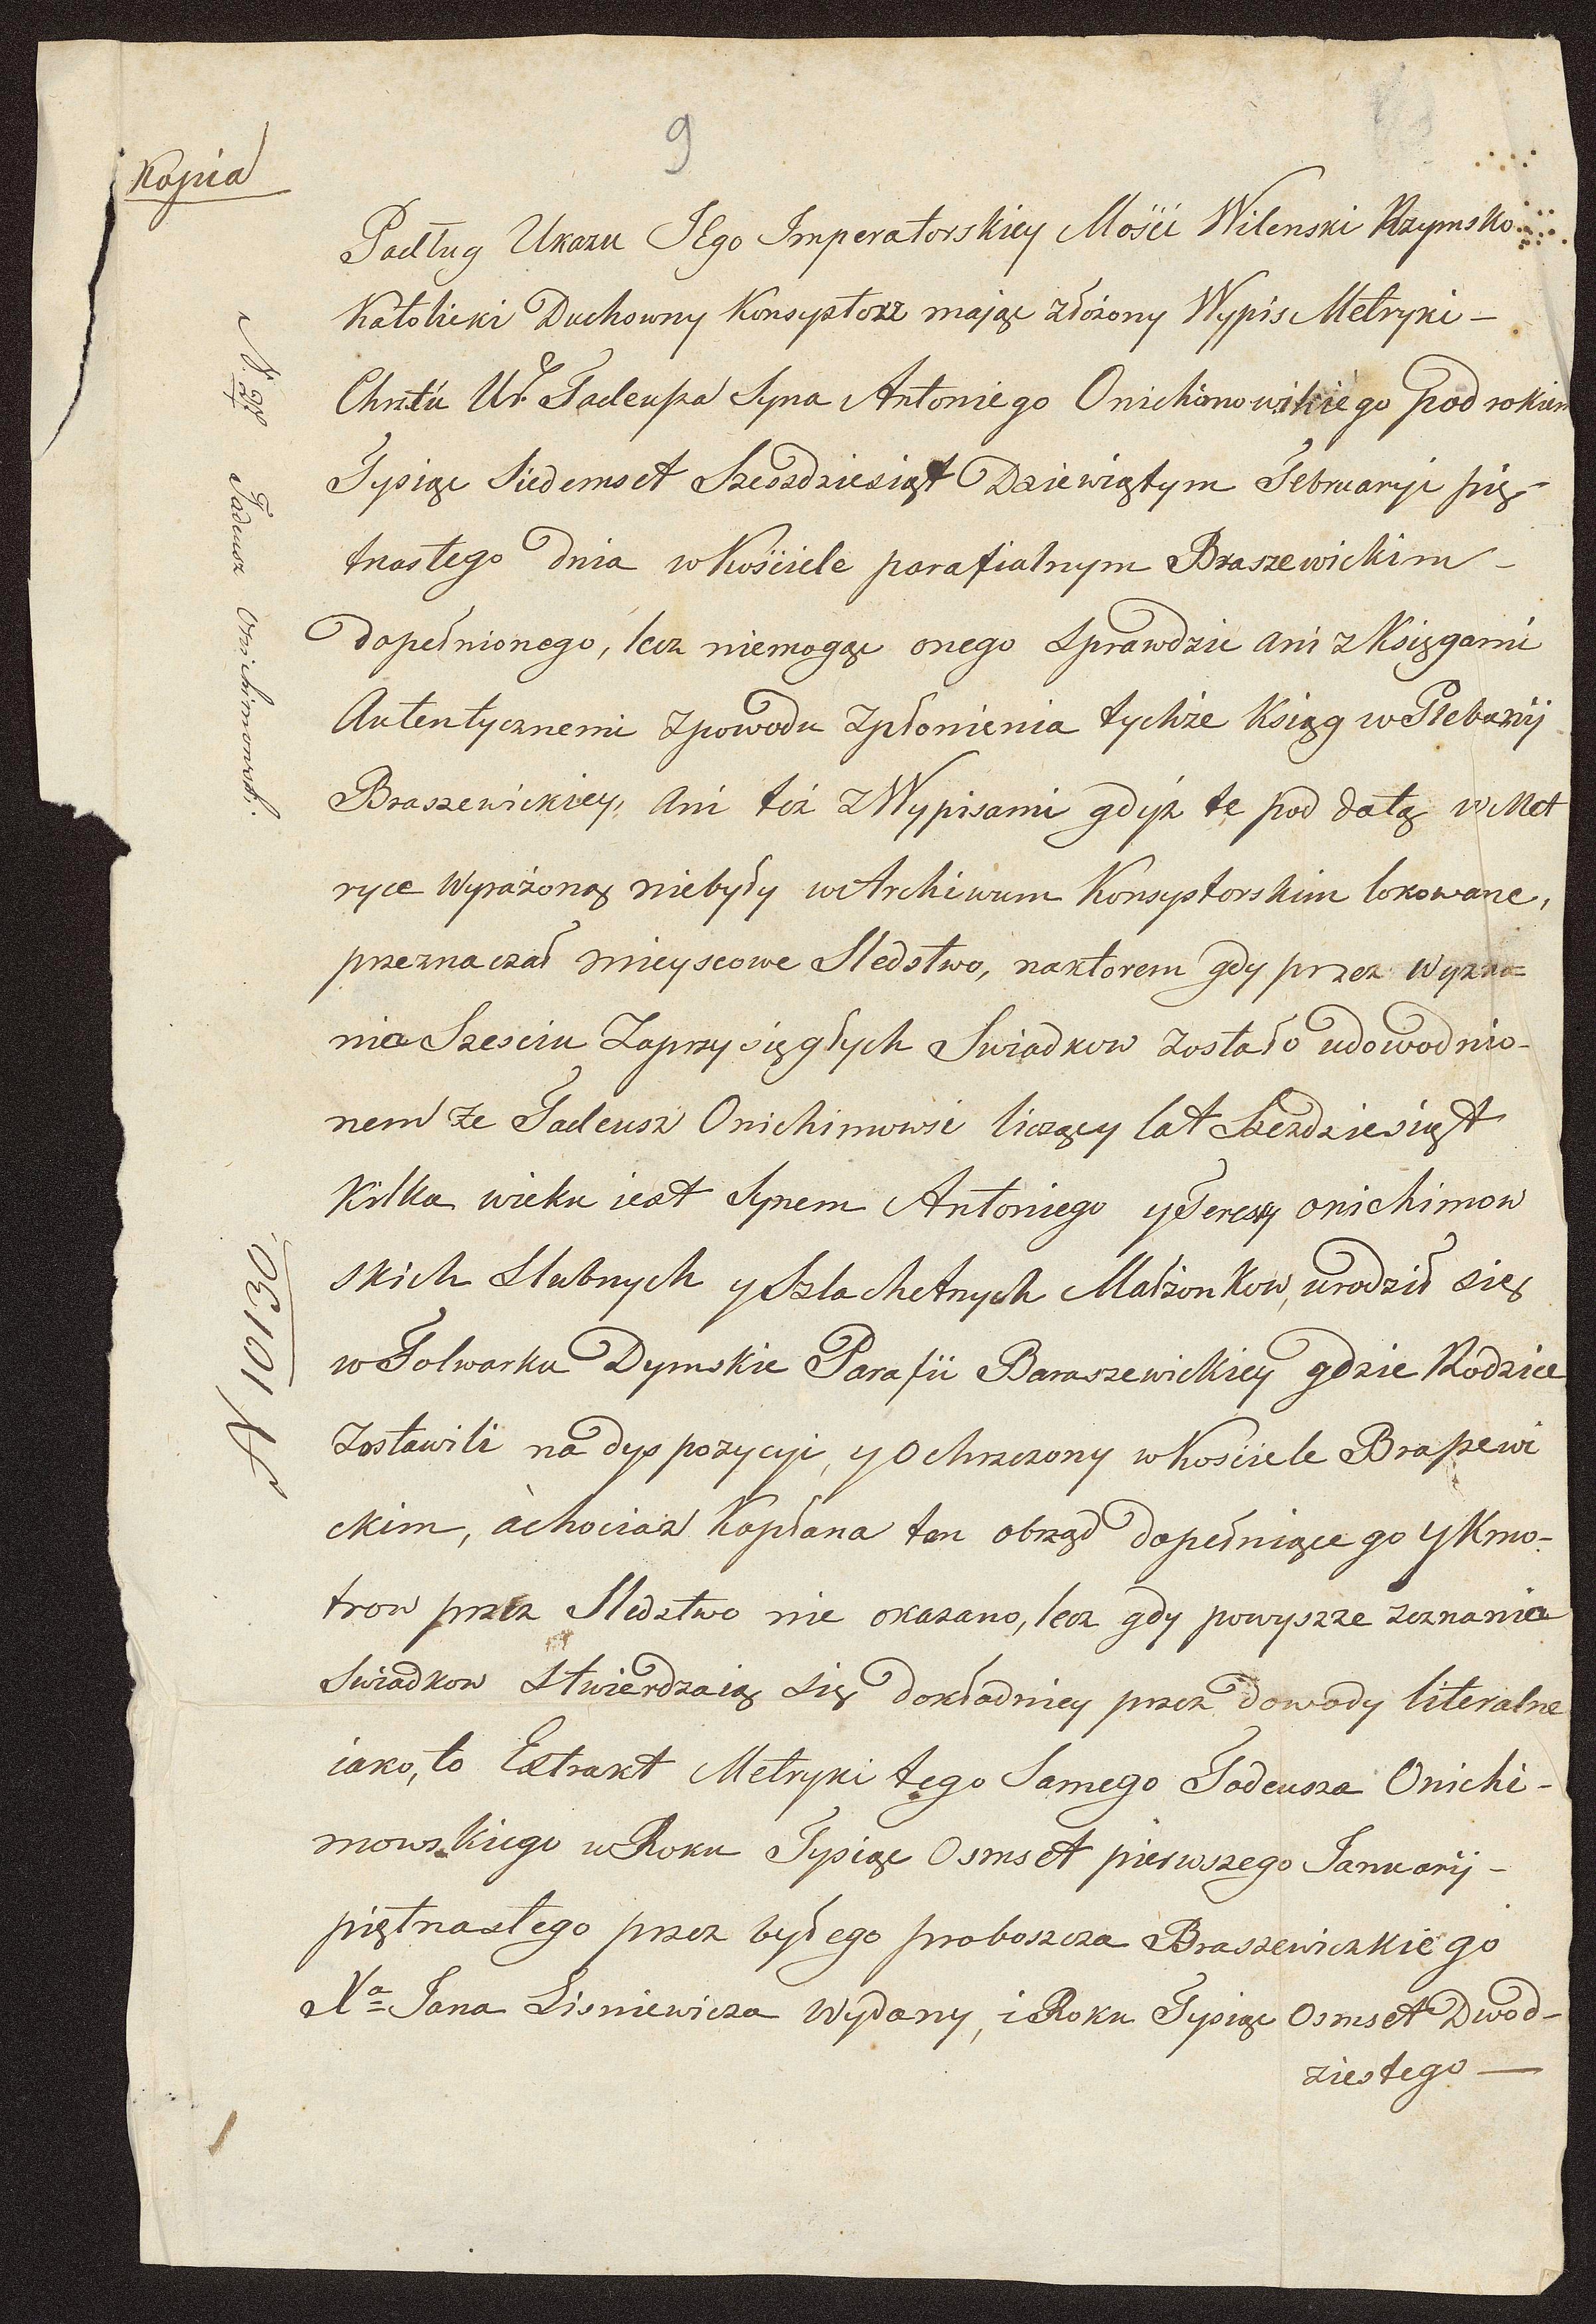 9
Kopia
Podług Ukazu JEgo Imperatorskiey Mości Wilenski Rzymsko
Katolicki Duchowny Konsystorz mając złożony Wypis Metryki –
Chrztu Ur. Tadeusza Syna Antoniego Onichimowskiego pod rokiem
Tysiąc Siedemset Szeszdziesiąt Dziewiątym Februaryi pię-
tnastego dnia w Kościele parafialnym Braszewickim –
dopełnionego, lecz niemogąc onego Sprawdzic ani z Księgami
Autentycznemi zpowodu zpłonienia tychże Ksiąg w Plebanij
Braszewickiey, Ani też z Wypisami gdyż te pod datą w Met
ryce Wyrażoną niebyły w Archiwum Konsystorskim lokowane,
przeznaczał mieyscowe Sledstwo, naktorem gdy przez Wyzna=
nia Szesciu Zaprzysięgłych Swiadkow zostało udowodnio-
nem że Tadeusz Onichimowsi liczący lat Szezdziesiąt
Kilka wieku iest Synem Antoniego y Teressy onichimow
skich Slubnych y Szlachetnych Małżonkow, urodził się
w Folwarku Dymskie Parafii Baraszewickiey gdzie Rodzice
Zostawili na dyspozycyi, y Ochrzczony w Kościele Braszewi
ckim, àchociaz Kapłana ten obrząd dopełniącego y Kmo-
trow przez Sledztwo nie okazano, lecz gdy powyszze zeznania
Swiadkow Stwierdzaią się dokładniey przez dowody literalne
iako, to Extrakt Metryki tego Samego Tadeusza Onichi-
mowskiego w Roku Tysiąc Osmset pierwszego Januarij –
piętnastego przez byłego proboszcza Braszewiczkiego
Xa Jana Lisniewicza Wydany, i Roku Tysiąc Osmset Dwod-
ziestego —
Tadeusz Onichimowski.
N 10130.